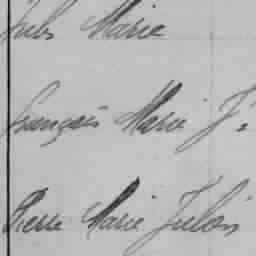 Jules Marie
François Marie J
Pierre Marie Julien